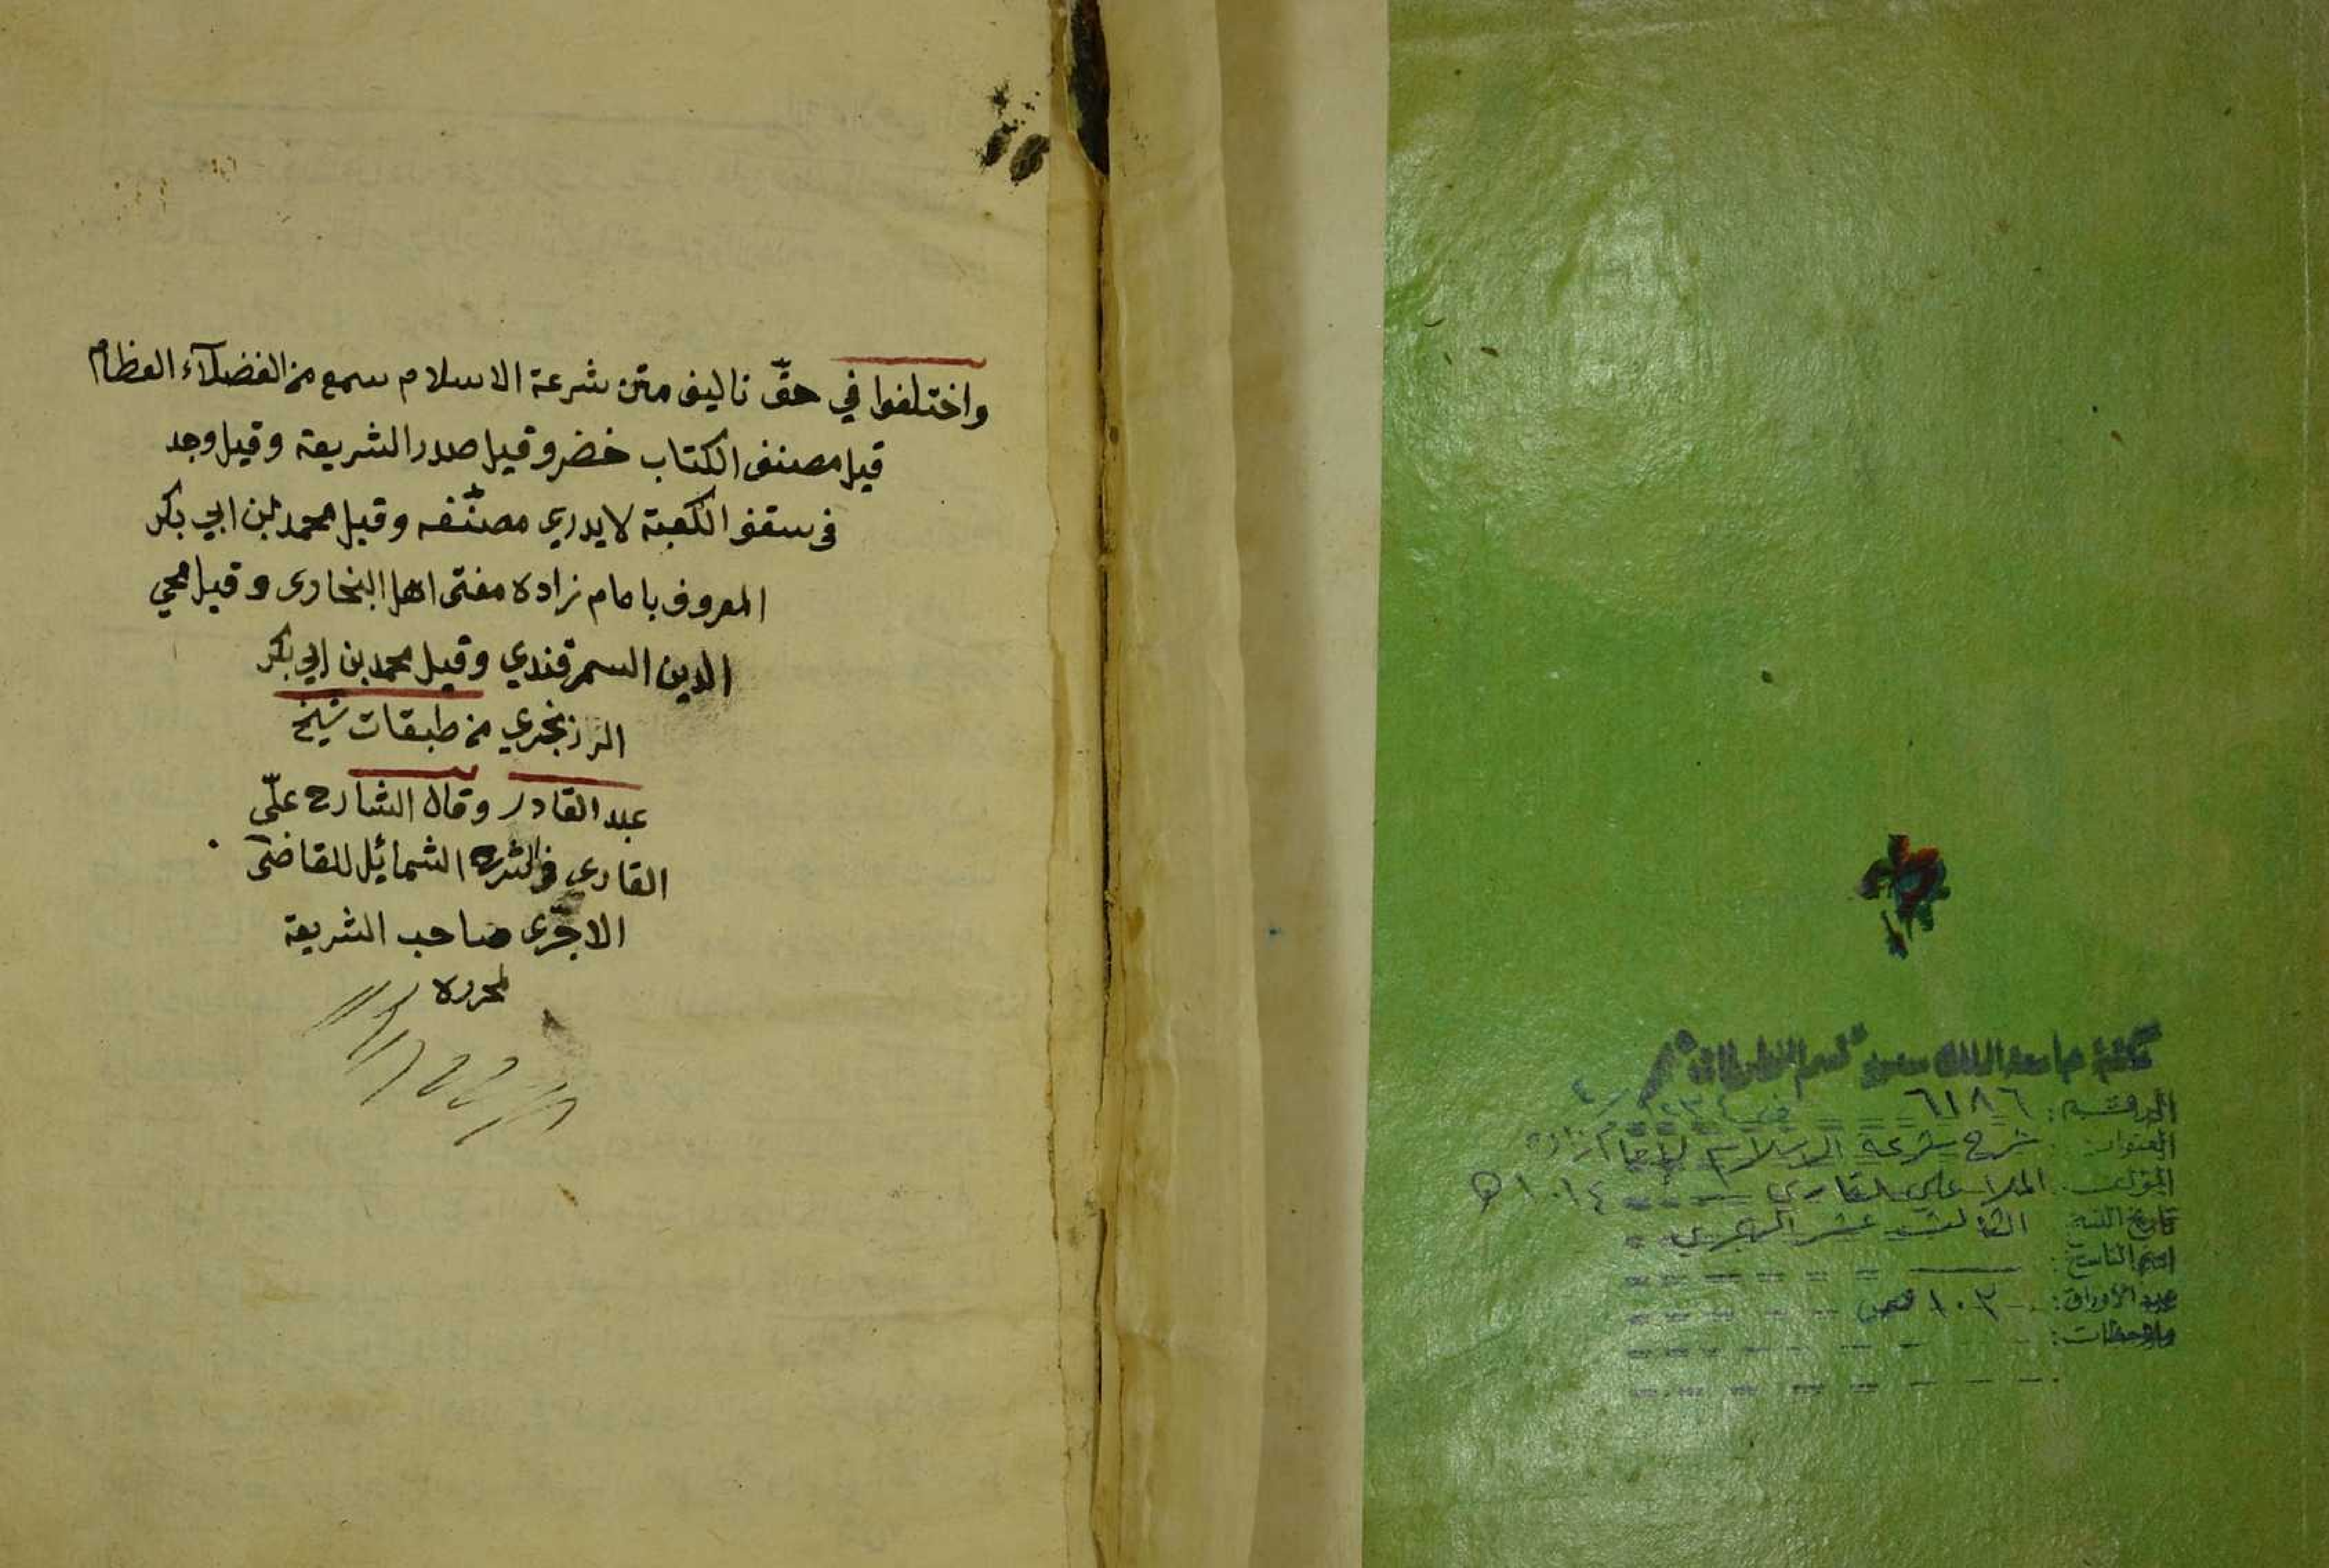 واختلفوا في حقّ تاليف متن شرعة الاسلام سمع من الفضلآء العظام
قيل مصنف الكتاب خضر وقيل صدر الشريعة وقيل وجد
فى سقف الكعبة لا يدري مصنّفه وقيل محمد بن ابي بكر
المعروف بامام زاده مفتى اهل البخارى وقيل محي
الدين السمرقندي وقيل محمد بن ابي بكر
الرزنجري من طبقات شيخ
عبد القادر وقال الشارح علّى
القارى الشمائل للقاضى
الاجرّى صاحب الشريعة
لمحرره
مكتبة جامعة الملك سعود قسم المخطوطات
الرقم: ٦١٨٦
العنوان: شرح شرعة الاسلام لإمام زاده
المؤلف: الملا علي القاري ١٠١٤ هـ
تاريخ النسخ: الثالث عشر الهجري
اسم الناسخ:
عدد الأوراق: ١٠٢
ملاحظات: